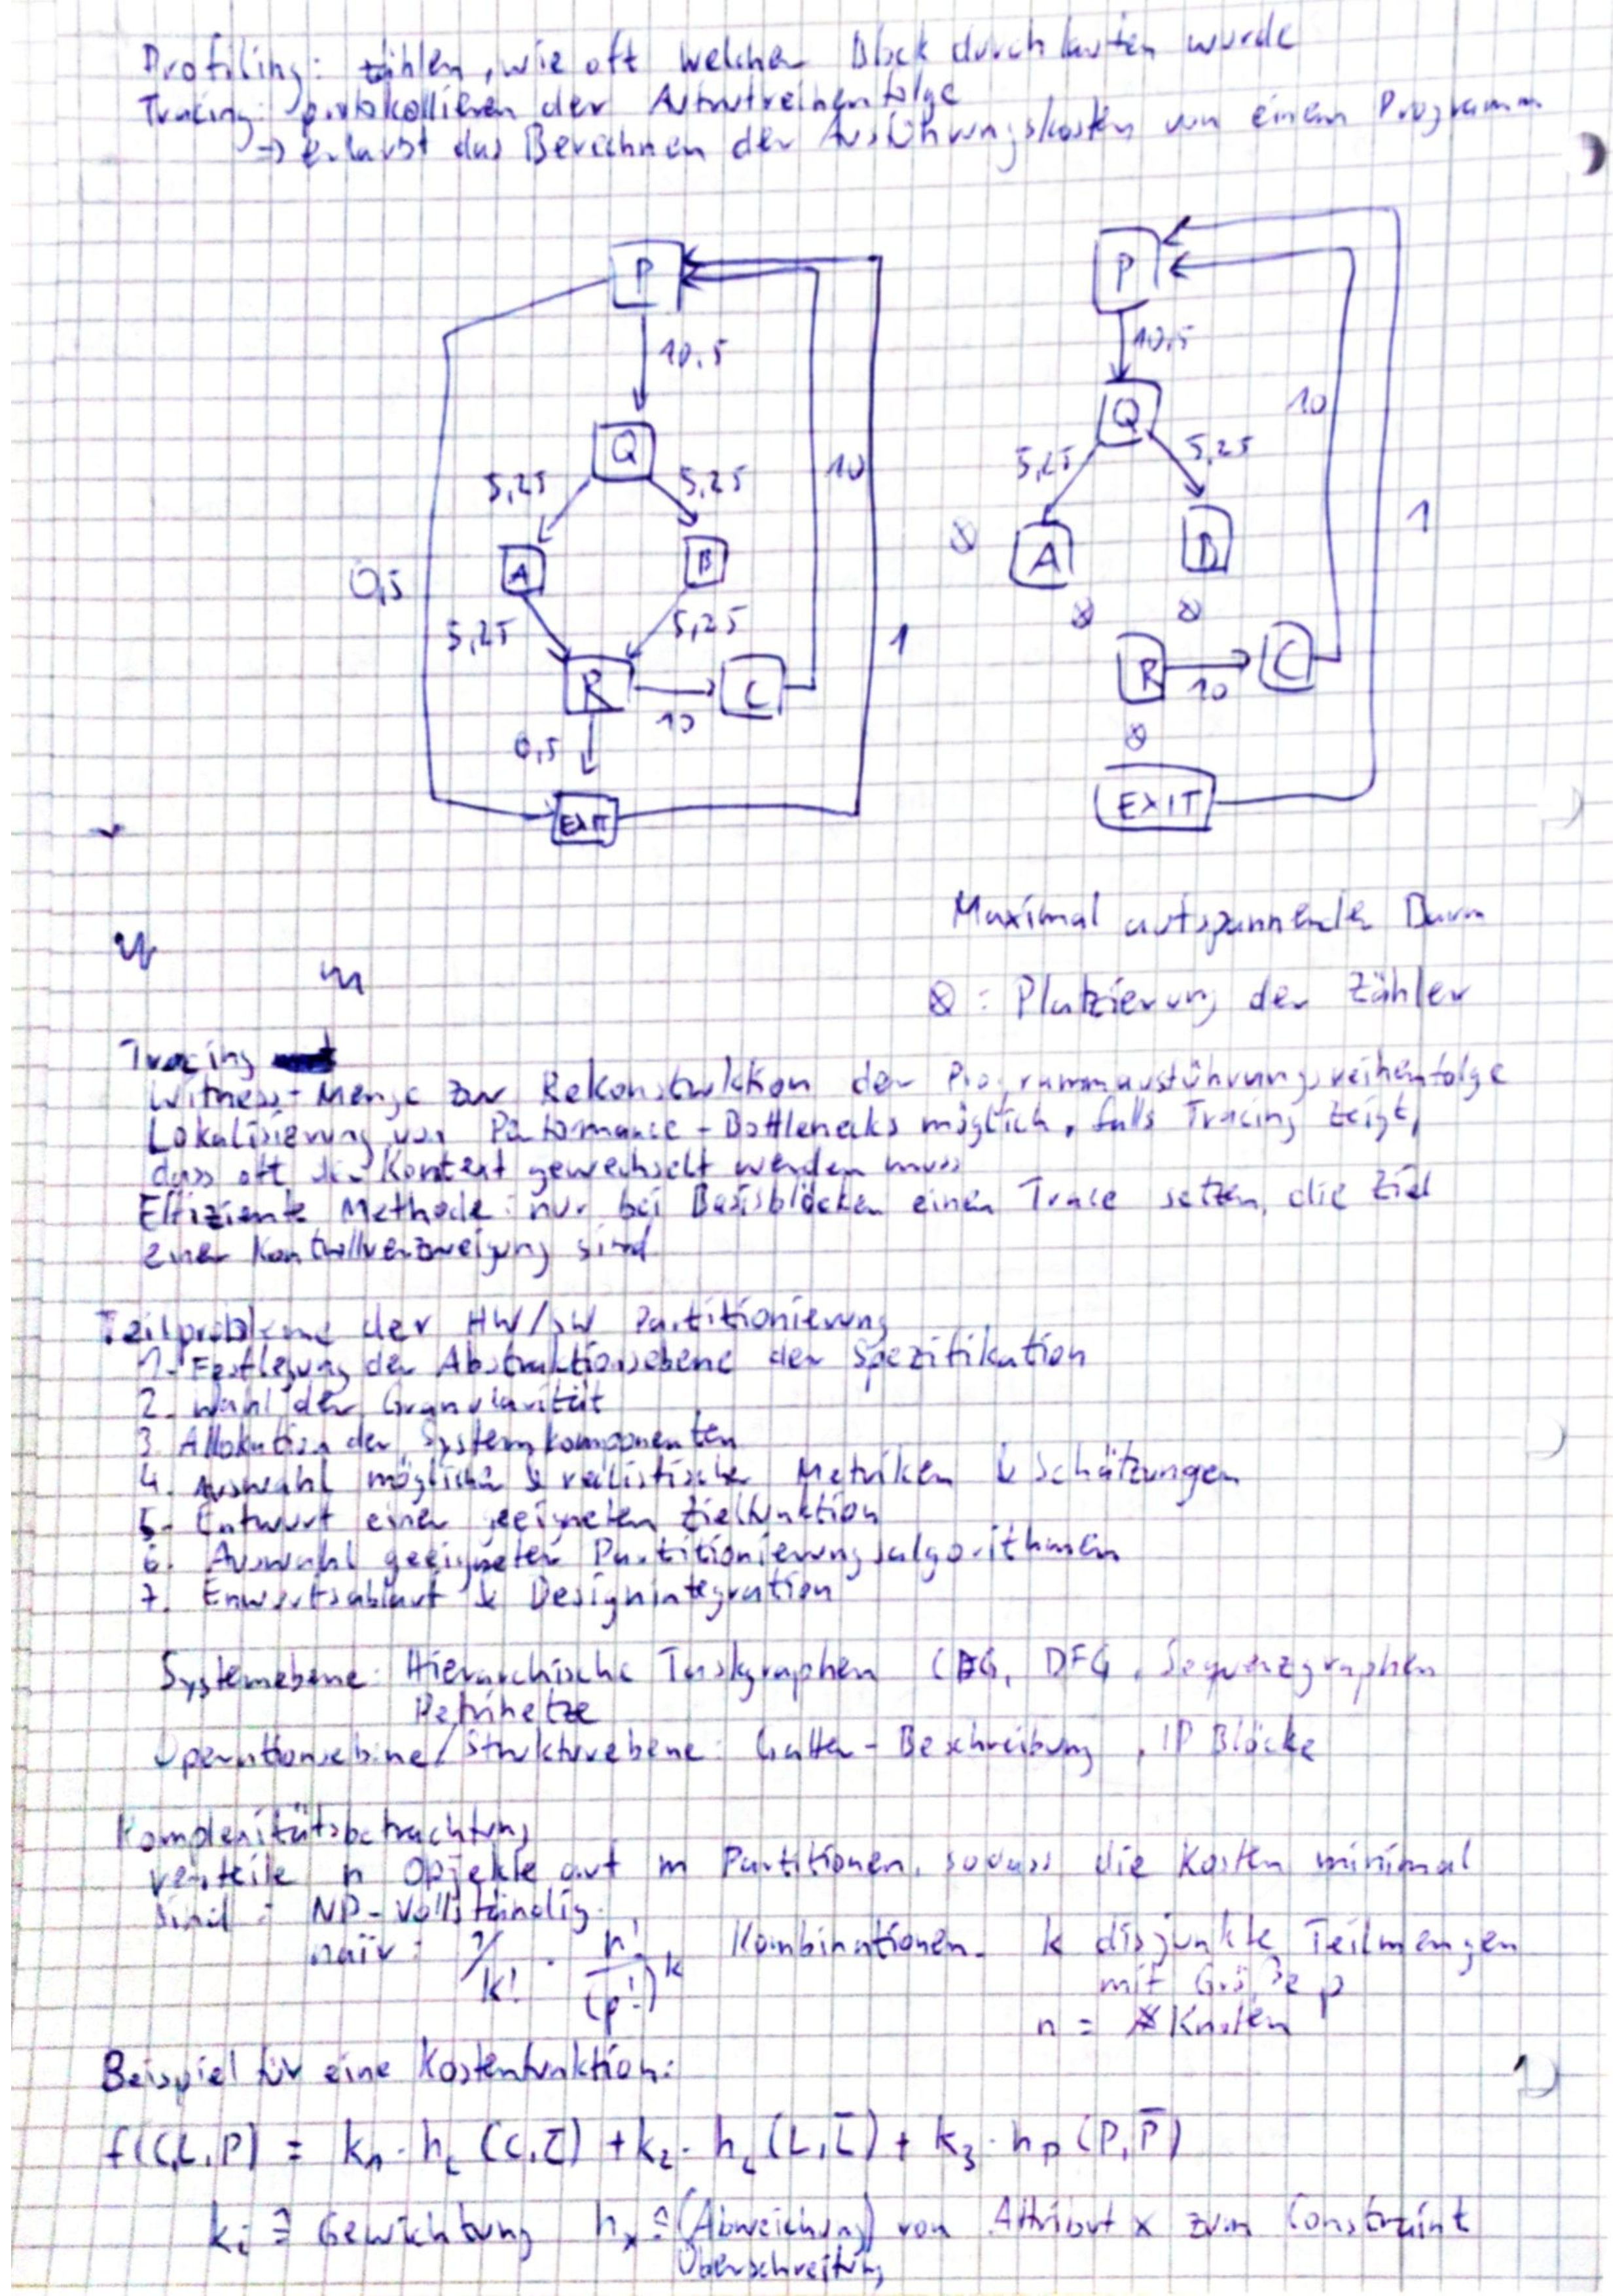 Profiling: zählen, wie oft welcher Block durchlaufen wurde
Tracing: protokollieren der Aufrufreihenfolge
→ erlaubt das Berechnen der Ausführungskosten von einem Programm
P
10,5
Q
5,25
5,25
A
B
0,5
5,25
5,25
R
C
10
0,5
EXIT
10
1
P
10,5
Q
5,25
5,25
⊗
A
B
⊗
⊗
R
10
C
⊗
EXIT
10
1
Maximal aufspannender Baum
⊗ : Platzierung der Zähler
Tracing
Witness-Menge zur Rekonstruktion der Programmausführungsreihenfolge
Lokalisierung von Performance-Bottlenecks möglich, falls Tracing zeigt,
dass oft der Kontext gewechselt werden muss
Effiziente Methode: nur bei Basisblöcken einen Trace setzen, die Ziel
einer Kontrollverzweigung sind
Teilprobleme der HW/SW Partitionierung
1. Festlegung der Abstraktionsebene der Spezifikation
2. Wahl der Granularität
3. Allokation der Systemkomponenten
4. Auswahl möglicher & realistischer Metriken & Schätzungen
5. Entwurf einer geeigneten Zielfunktion
6. Auswahl geeigneter Partitionierungsalgorithmen
7. Enwurfsablauf & Designintegration
Systemebene: Hierarchische Taskgraphen CFG, DFG, Sequenzgraphen
Petrinetze
Operationsebene/Strukturebene: Gatter-Beschreibung, IP Blöcke
Komplexitätsbetrachtung
verteile n Opjekte auf m Partitionen, sodass die Kosten minimal
sind: NP-Vollständig.
naïv: 1/k! · n!/(p!)^k Kombinationen. k disjunkte Teilmengen
mit Größe p
n = # Knoten
Beispiel für eine Kostenfunktion:
f(C,L,P) = k₁·h_c (C,C̄) + k₂·h_L (L,L̄) + k₃·h_P (P,P̄)
kᵢ ≙ Gewichtung hₓ ≙ (Abweichung) von Attribut x zum Constraint
Überschreitung